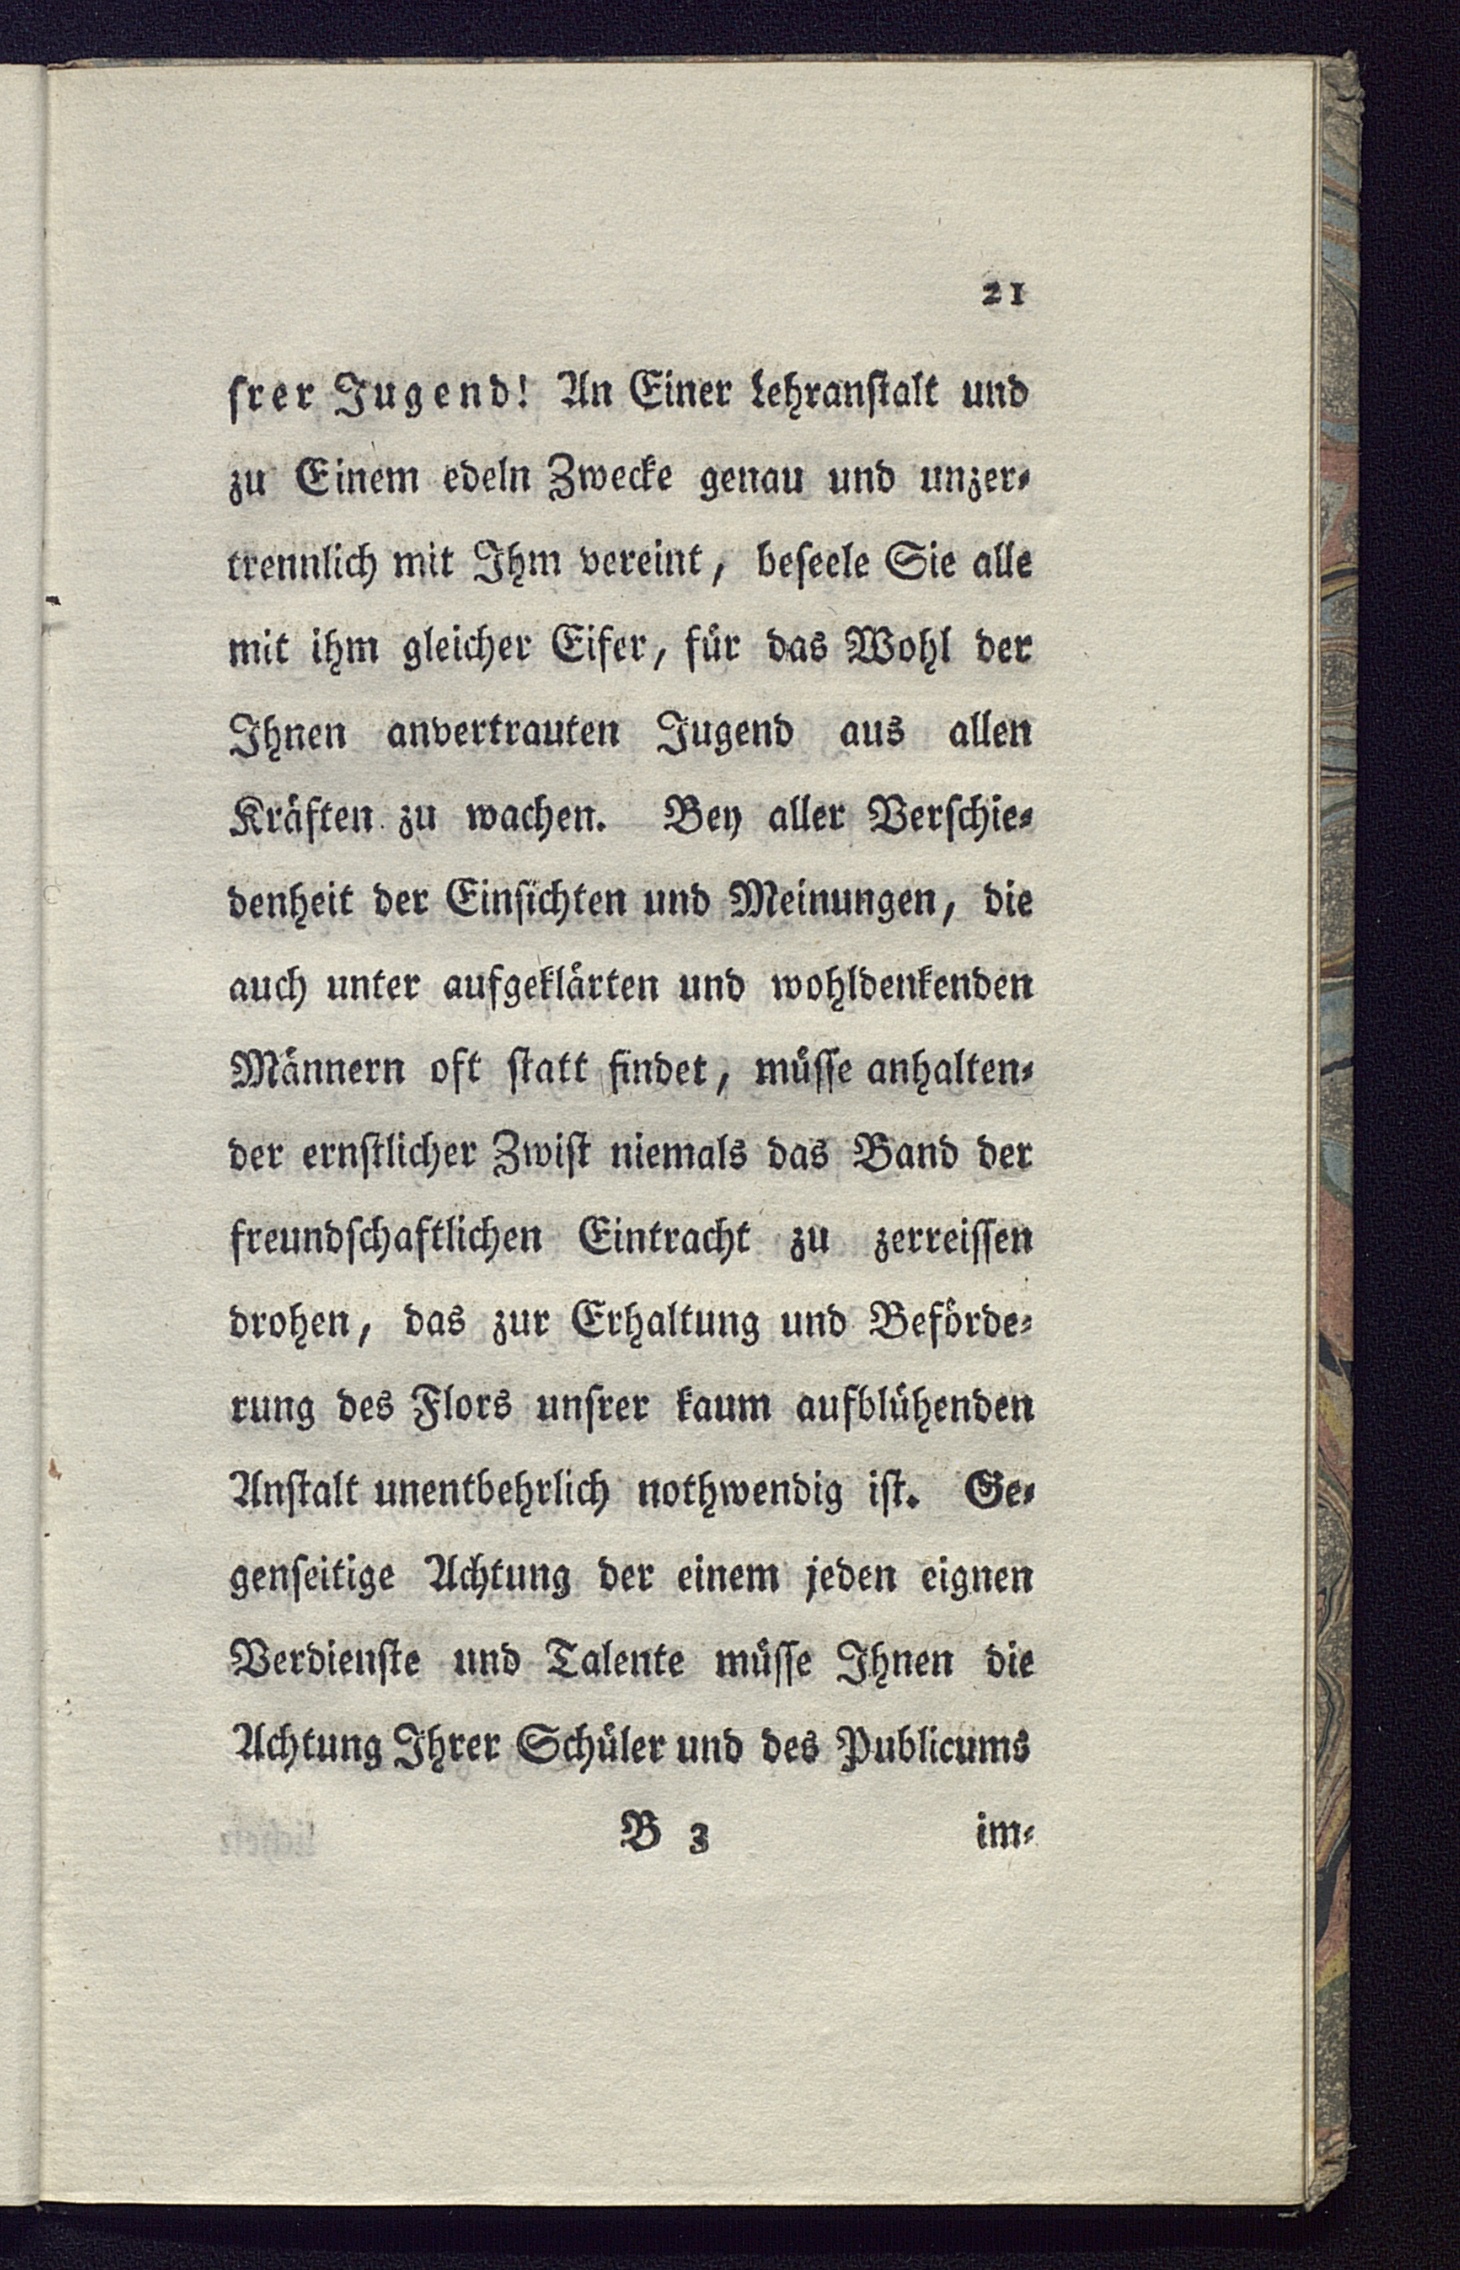 21
ſrer Jugend! An Einer Lehranſtalt und
zu Einem edeln Zwecke genau und unzer⸗
trennlich mit Ihm vereint, beſeele Sie alle
mit ihm gleicher Eifer, fuͤr das Wohl der
Ihnen anvertrauten Jugend aus allen
Kraͤften zu wachen. Bey aller Verſchie⸗
denheit der Einſichten und Meinungen, die
auch unter aufgeklaͤrten und wohldenkenden
Maͤnnern oft ſtatt findet, muͤſſe anhalten⸗
der ernſtlicher Zwiſt niemals das Band der
freundſchaftlichen Eintracht zu zerreiſſen
drohen, das zur Erhaltung und Befoͤrde⸗
rung des Flors unſrer kaum aufbluͤhenden
Anſtalt unentbehrlich nothwendig iſt. Ge⸗
genſeitige Achtung der einem jeden eignen
Verdienſte und Talente muͤſſe Ihnen die
Achtung Ihrer Schuͤler und des Publicums
B 3 im⸗